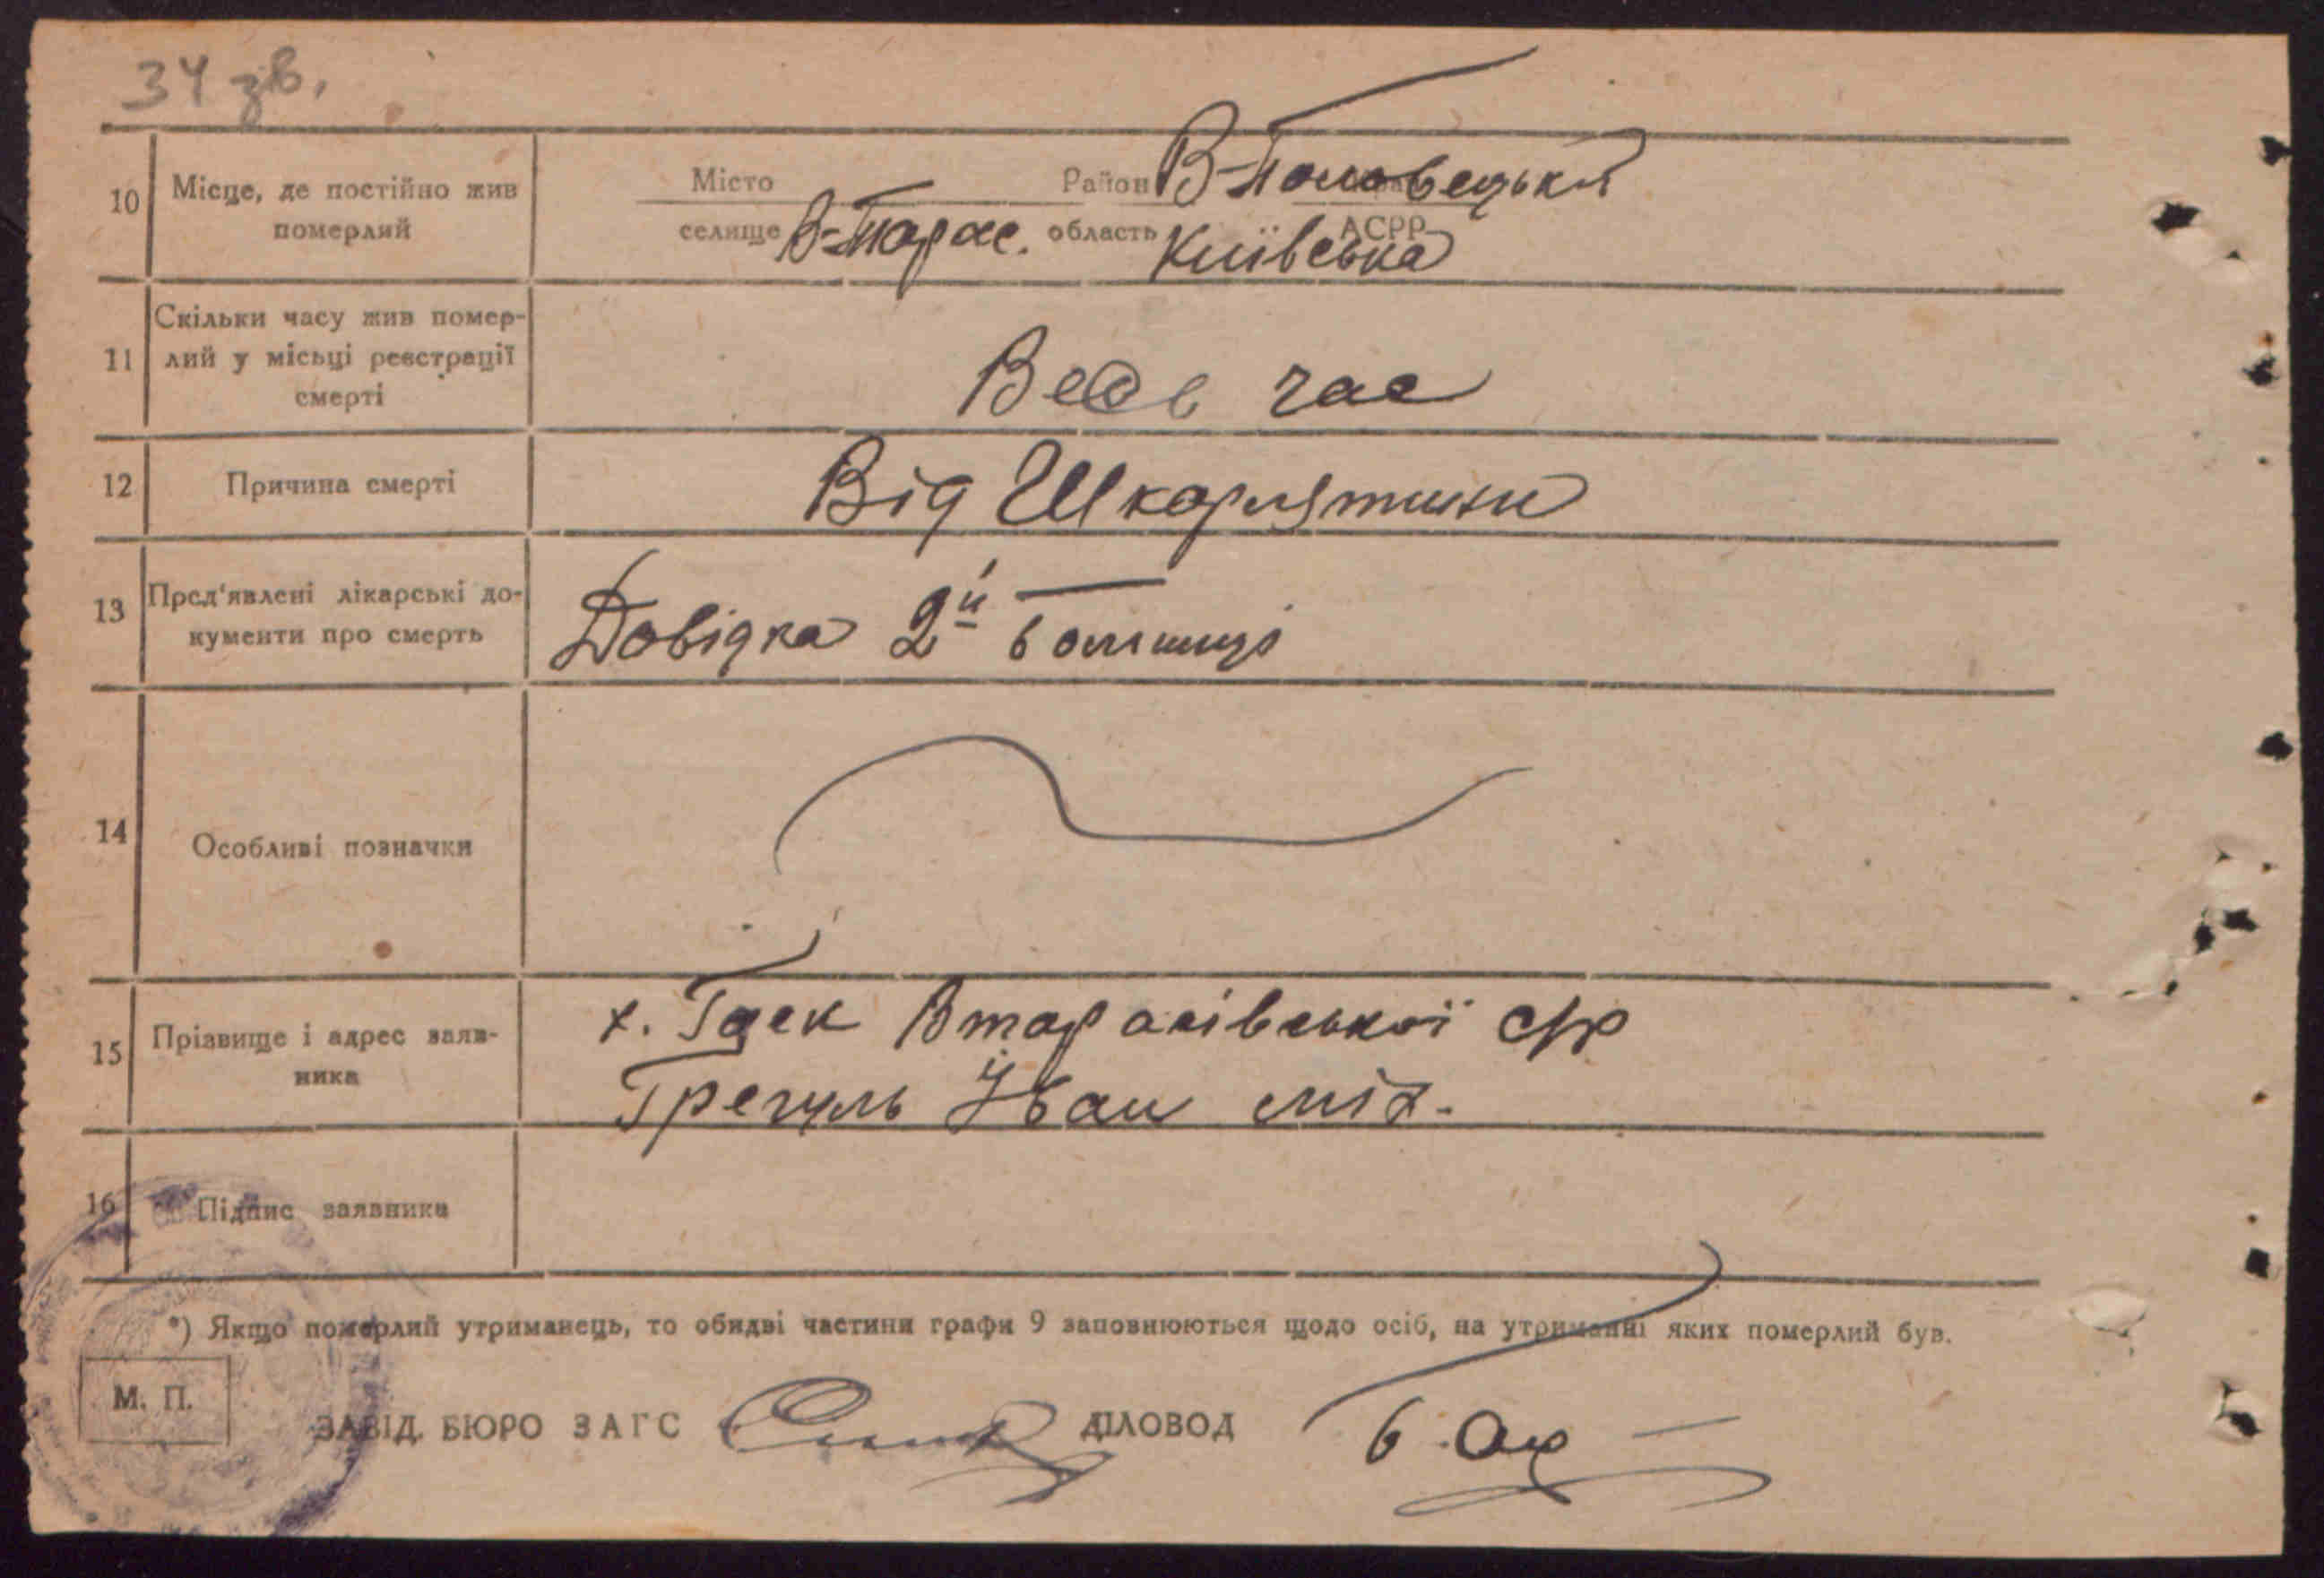 34 зв.
10 Місце, де постійно жив померлий
Місто Район В-Половецький
селище В-Тарас. область Київська АСРР
11 Скільки часу жив помер-
лий у місьці реєстрації
смерті
Весь час
12 Причина смерті Від Шкорлятини
13 Пред'явлені лікарські до-
кументи про смерть
Довідка 2й больниці
14 Особливі позначки
15 Прізвище і адрес заяв-
ника
х. Гаєк Втарасівської с/р
Грегуль Іван міх.
16 Підпис заявника
*) Якщо померлий утриманець, то обидві частини графи 9 заповнюються щодо осіб, на утриманні яких померлий був.
М. П.
ЗАВІД. БЮРО ЗАГС ДІЛОВОД